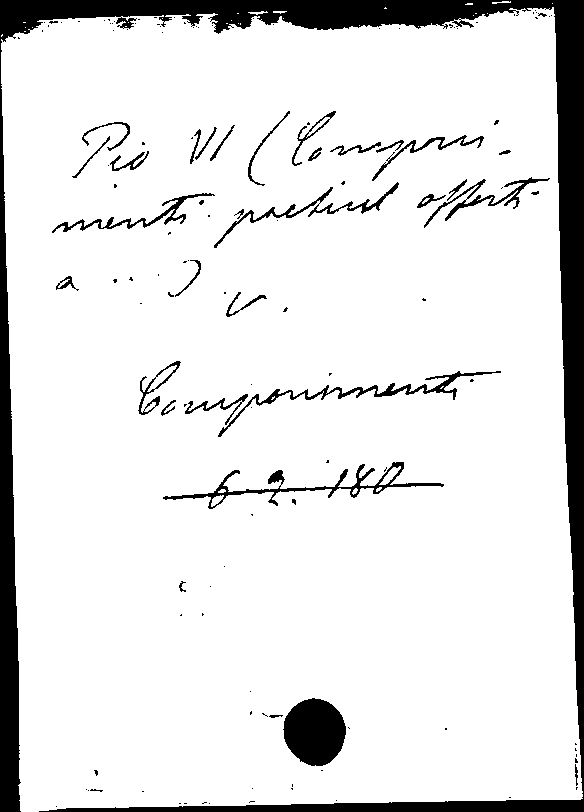 Pio VI (Componi-
menti poetici offerti
a ...)
v.
Componimenti
6 2. 180